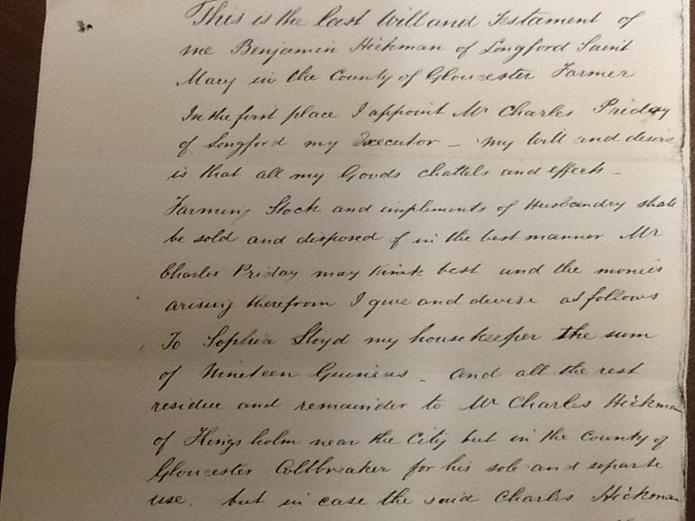 This is the last Will and Testament of
me Benjamin Hickman of Longford Saint
Mary in the County of Gloucester Farmer
In the first place I appoint Mr Charles Priday
of Longford my Executor – my Will and desire
is that all my Goods chattels and effects –
Farming Stock and implements of Husbandry shall
be sold and disposed of in the best manner Mr
Charles Priday may think best and the monies
arising therefrom I give and devise as follows
To Sophia Lloyd my housekeeper the sum
of Nineteen Guineas – And all the rest
residue and remainder to Mr Charles Hickman
of Kingsholm near the City but in the County of
Gloucester Coltbreaker for his sole and separate
use. but in case the said Charles Hickman